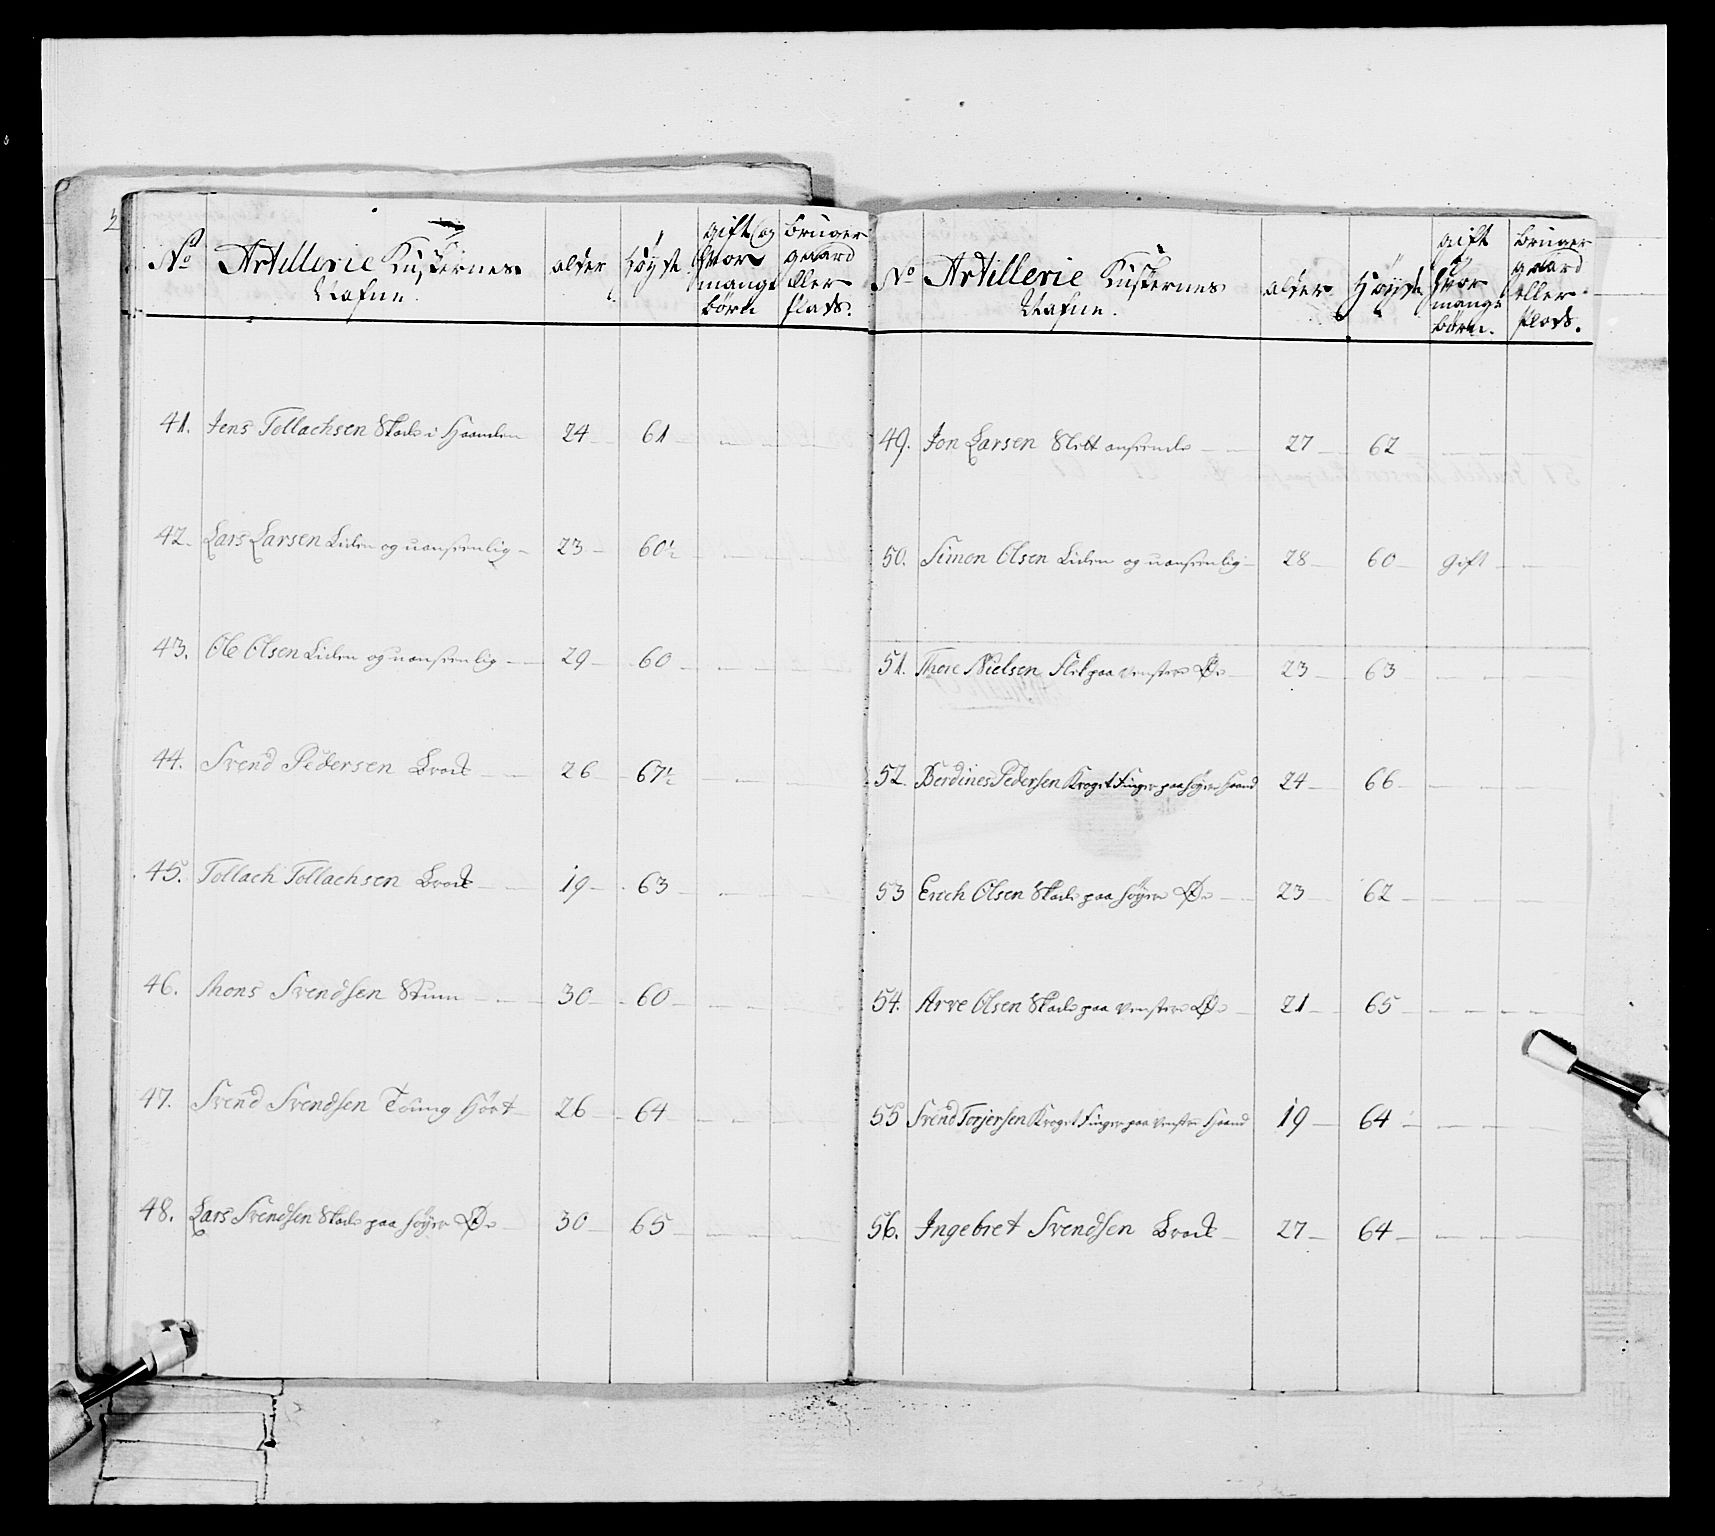 No Artillerie Kuskernes Nafne. alder Høyde gift og hvor mange børn bruger gaard eller plads.
41. Jens Tollachsen Skade i Haanden 24 61
42. Lars Larsen Liden og uanseenlig 23 60½
43. Ole Olsen Liden og uanseenlig 29 60
44. Svend Pedersen Brock 26 67½
45. Tollach Tollachsen Brock 19 63
46. Mons Svendsen Stum 30 60
47. Svend Svendsen Toung Hørt 26 64
48. Lars Svendsen Skade paa høyre Øe 30 65
No Artillerie Kuskernes Nafne. alder Høyde gift og hvor mange børn. bruger gaard eller plads.
49. Jon Larsen Slett anseende 27 62
50. Simon Olsen Liden og uanseenlig 28 60 gift
51. Thore Nielsen Flek paa venstre Øe 23 63
52. Berdines Pedersen Kroget Finger paa høyre Haand 24 66
53 Erich Olsen Skade paa høyre Øe 23 62
54. Arve Olsen Skade paa venstre Øe 21 65
55 Svend Torjersen Kroget Finger paa venstre Haand 19 64
56. Ingebret Svendsen Brock 27 64